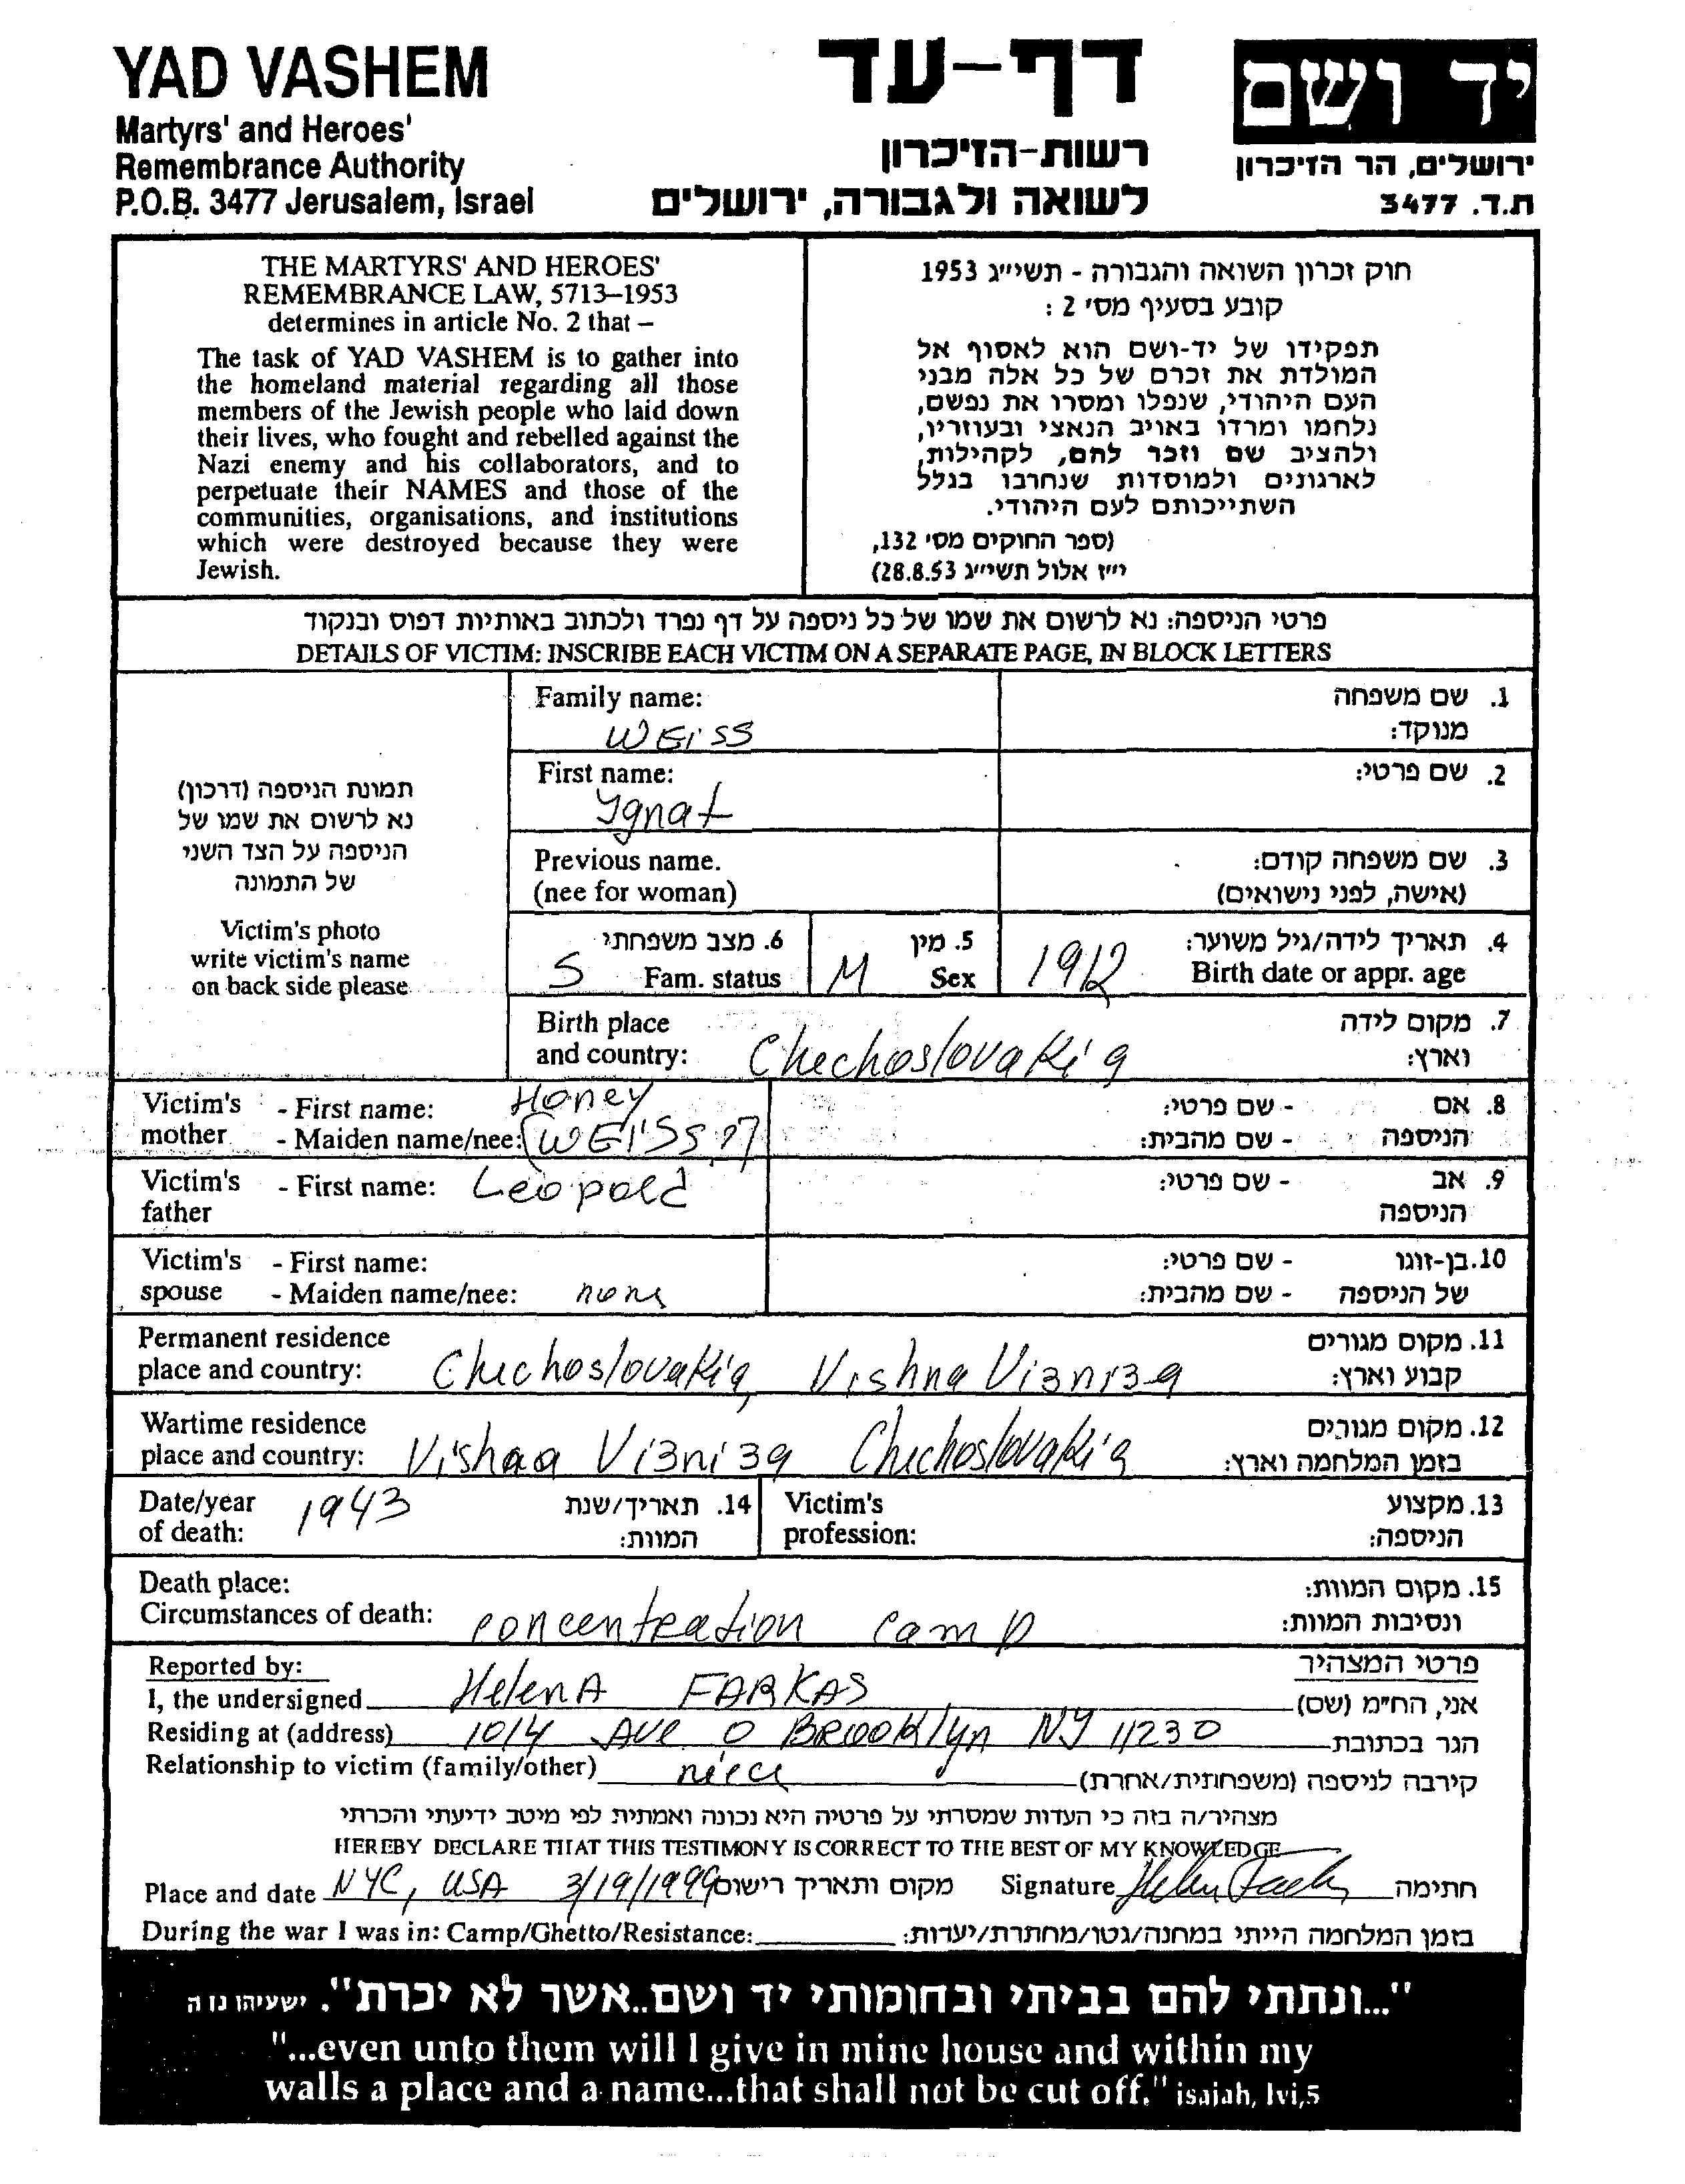 YAD VASHEM
Martyrs' and Heroes'
Remembrance Authority
P.O.B. 3477 Jerusalem, Israel
דף-עד
רשות-הזיכרון
לשואה ולגבורה, ירושלים
יד ושם
ירושלים, הר הזיכרון
ת.ד. 3477
THE MARTYRS' AND HEROES'
REMEMBRANCE LAW, 5713–1953
determines in article No. 2 that –
The task of YAD VASHEM is to gather into
the homeland material regarding all those
members of the Jewish people who laid down
their lives, who fought and rebelled against the
Nazi enemy and his collaborators, and to
perpetuate their NAMES and those of the
communities, organisations, and institutions
which were destroyed because they were
Jewish.
חוק זכרון השואה והגבורה - תשי"ג 1953
קובע בסעיף מס' 2 :
תפקידו של יד-ושם הוא לאסוף אל
המולדת את זכרם של כל אלה מבני
העם היהודי, שנפלו ומסרו את נפשם,
נלחמו ומרדו באויב הנאצי ובעוזריו,
ולהציב שם וזכר להם, לקהילות,
לארגונים ולמוסדות שנחרבו בגלל
השתייכותם לעם היהודי.
(ספר החוקים מס' 132,
י"ז אלול תשי"ג 28.8.53)
פרטי הניספה: נא לרשום את שמו של כל ניספה על דף נפרד ולכתוב באותיות דפוס ובנקוד
DETAILS OF VICTIM: INSCRIBE EACH VICTIM ON A SEPARATE PAGE, IN BLOCK LETTERS
תמונת הניספה (דרכון)
נא לרשום את שמו של
הניספה על הצד השני
של התמונה
Victim's photo
write victim's name
on back side please
Family name: 1. שם משפחה
WEISS מנוקד:
First name: 2. שם פרטי:
Ygnat
Previous name. 3. שם משפחה קודם:
(nee for woman) (אישה, לפני נישואים)
6. מצב משפחתי 5. מין 4. תאריך לידה/גיל משוער:
S Fam. status M Sex 1912 Birth date or appr. age
Birth place 7. מקום לידה
and country: Chechoslovakia וארץ:
Victim's - First name: Honey 8. אם - שם פרטי:
mother - Maiden name/nee: (WEISS ?) הניספה - שם מהבית:
Victim's - First name: Leopold 9. אב - שם פרטי:
father הניספה
Victim's - First name: 10. בן-זוגו - שם פרטי:
spouse - Maiden name/nee: none של הניספה - שם מהבית:
Permanent residence 11. מקום מגורים
place and country: Chechoslovakia, Vishna Vizniza קבוע וארץ:
Wartime residence 12. מקום מגורים
place and country: Vishna Vizniza Chechoslovakia בזמן המלחמה וארץ:
Date/year 1943 14. תאריך/שנת Victim's 13. מקצוע
of death: המוות: profession: הניספה:
Death place: 15. מקום המוות:
Circumstances of death: concentration camp ונסיבות המוות:
Reported by: פרטי המצהיר
I, the undersigned HelenA FARKAS אני, הח"מ (שם)
Residing at (address) 1014 Ave O Brooklyn NY 11230 הגר בכתובת
Relationship to victim (family/other) niece קירבה לניספה (משפחתית/אחרת)
מצהיר/ה בזה כי העדות שמסרתי על פרטיה היא נכונה ואמתית לפי מיטב ידיעתי והכרתי
HEREBY DECLARE THAT THIS TESTIMONY IS CORRECT TO THE BEST OF MY KNOWLEDGE
Place and date NYC, USA 3/19/1999 מקום ותאריך רישום Signature חתימה
During the war I was in: Camp/Ghetto/Resistance: בזמן המלחמה הייתי במחנה/גטו/מחתרת/יערות:
"...ונתתי להם בביתי ובחומותי יד ושם..אשר לא יכרת". ישעיהו נו ה
"...even unto them will I give in mine house and within my
walls a place and a name...that shall not be cut off." isaiah, lvi,5